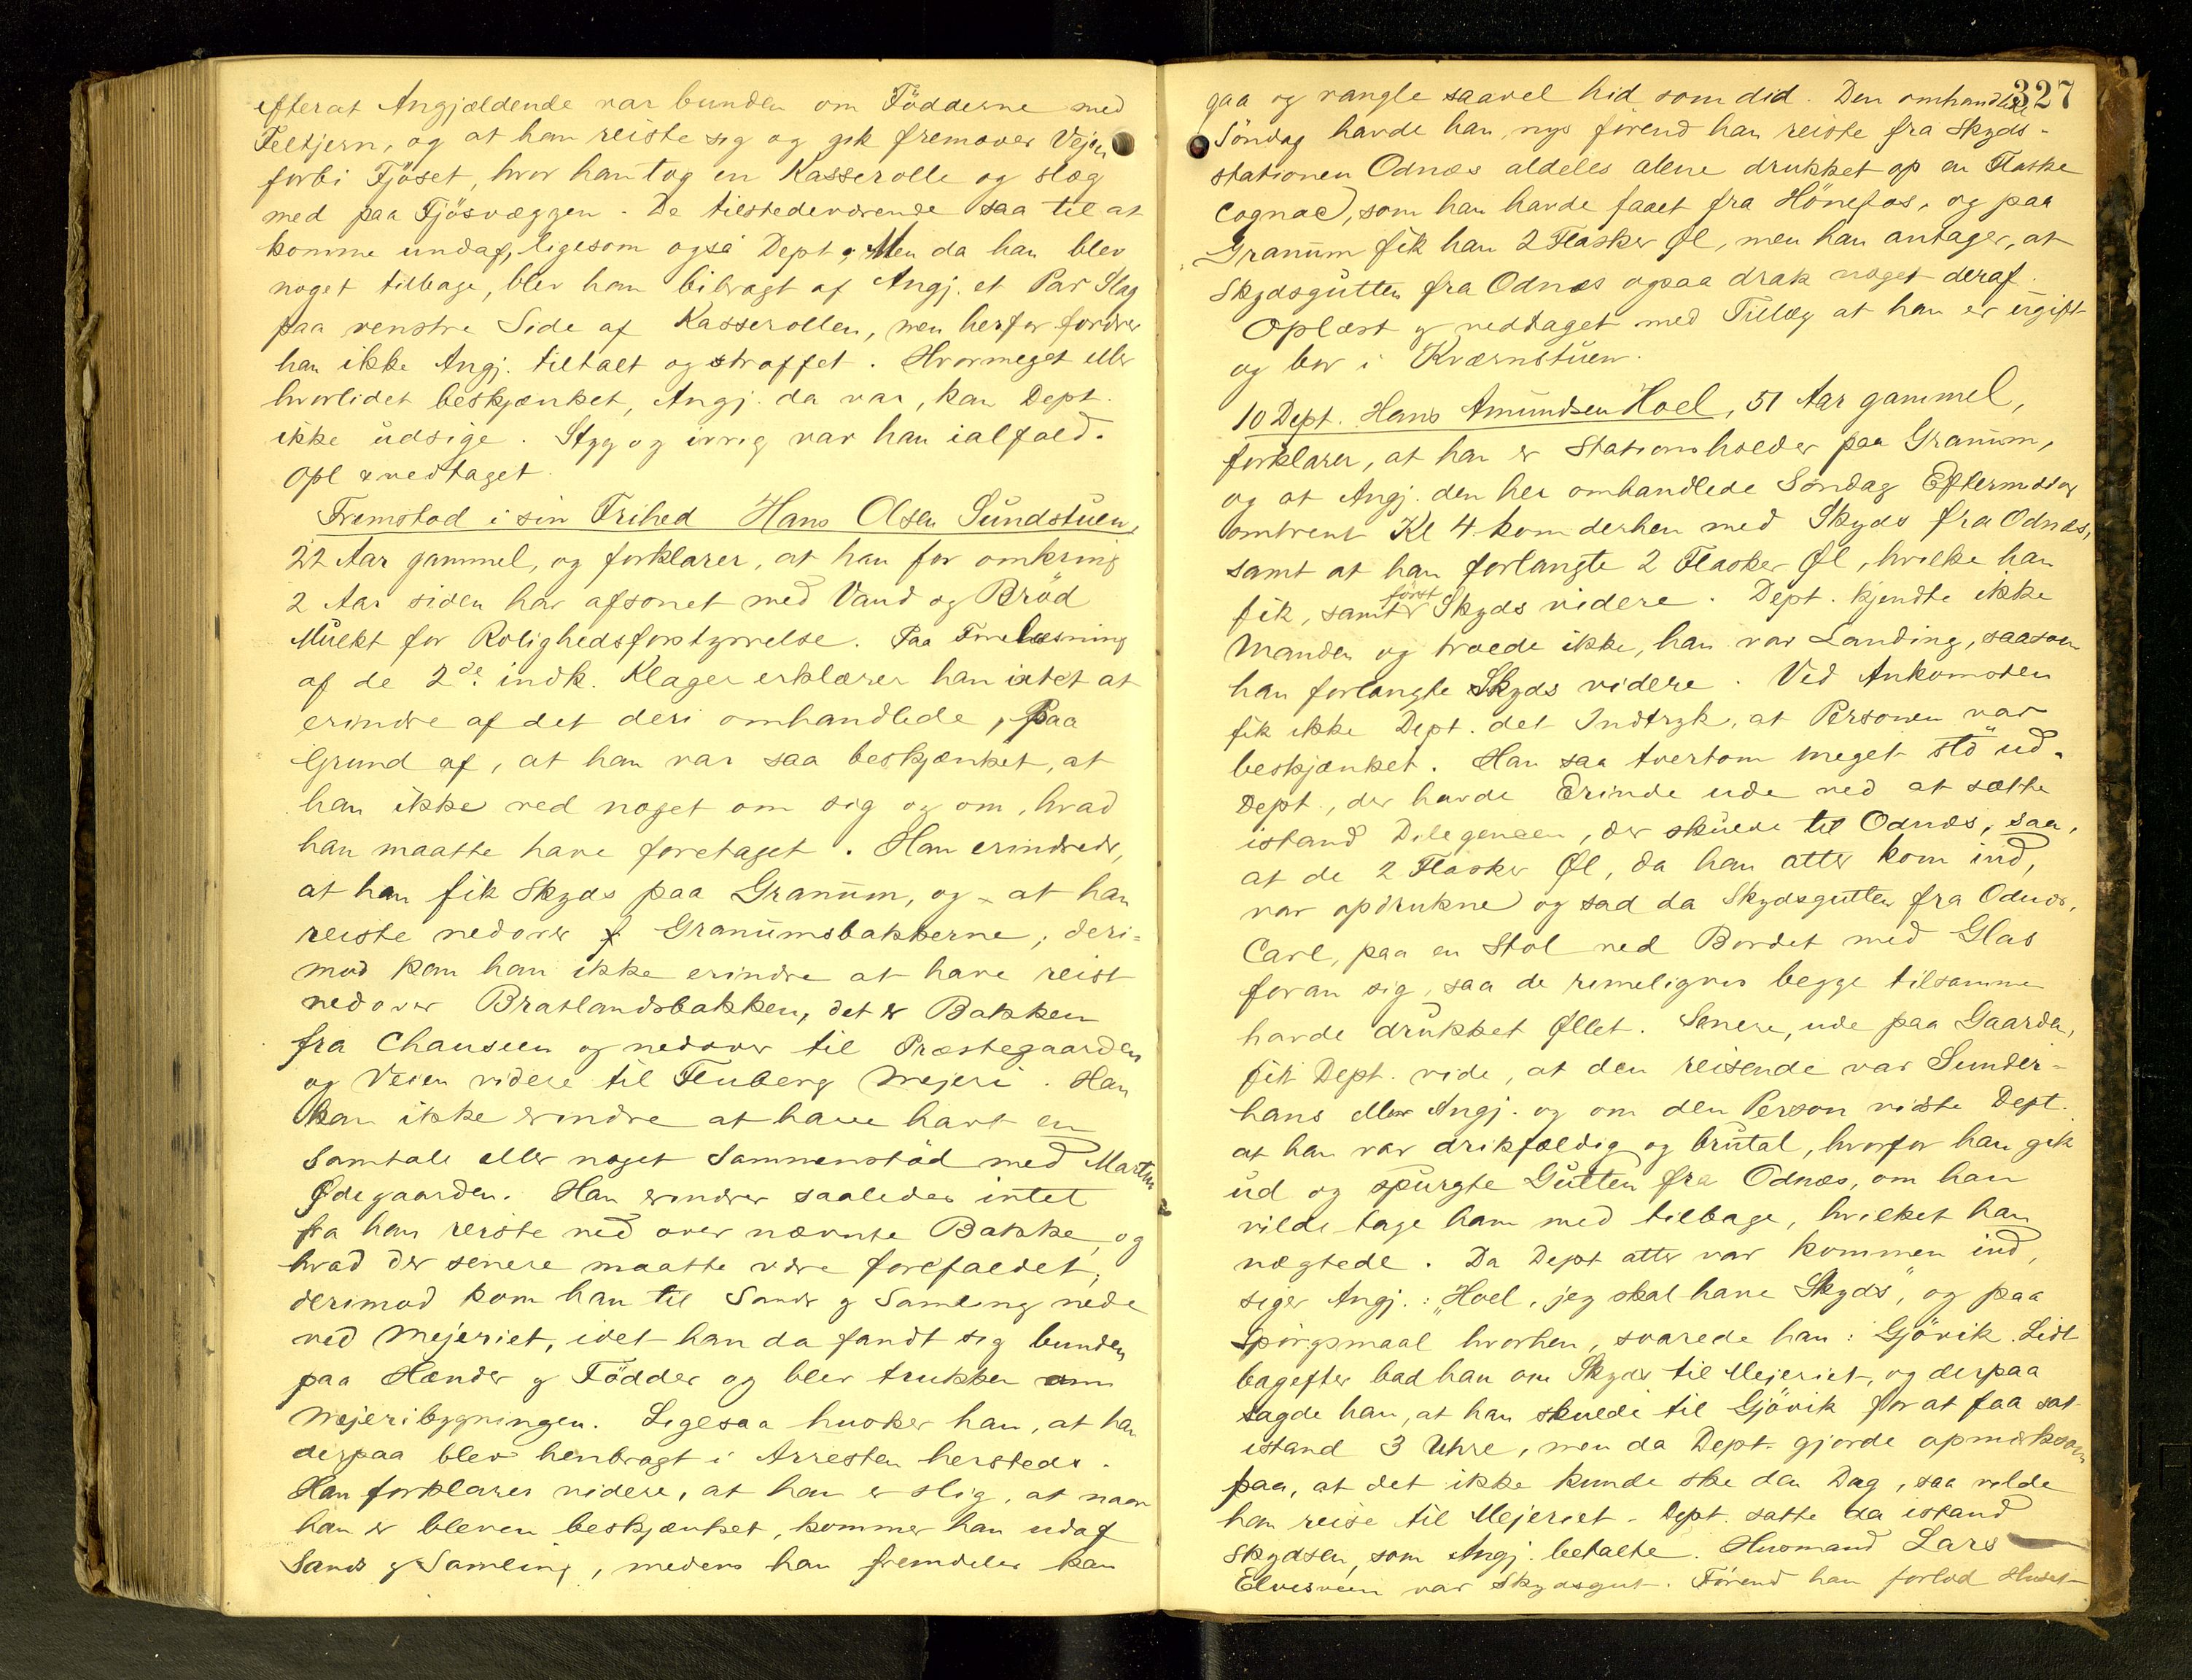 efterat Angjældende var bunden om Födderne med
Feltjern, og at han reiste sig og gik fremover Vejen
forbi Fjöset, hvor han tog en Kasserolle og slog
med paa Fjösvæggen. De tilstedeværende saa til at
komme undaf, ligesom også Dept. Men da han blev
noget tilbage, blev han bibragt af Angj. et Par Slag
paa venstre Side af Kasserollen, men herfor fordrer
han ikke Angj. tiltalt og straffet. Hvormeget eller
hvorlidet beskjænket, Angj. da var, kan Dept.
ikke udsige. Styg og ivrig var han ialfald.
Opl & vedtaget.
Fremstod i sin Frihed Hans Olsen Sundstuen,
22 Aar gammel, og forklarer, at han for omkring
2 Aar siden har afsonet med Vand og Bröd
Mulkt for Rolighedsforstyrrelse. Paa Forelæsning
af de 2de indk. Klager erklærer han intet at
erindre af det deri omhandlede, paa
Grund af, at han var saa beskjænket, at
han ikke ved noget om sig og om, hvad
han maatte have foretaget. Han erindrede,
at han fik Skyds paa Granum, og at han
reiste nedover Granumsbakkerne; deri=
mod kan han ikke erindre at have reist
nedover Bratlandsbakken, det er Bakken
fra Chauseen og nedover til Præstegaarden
og Veien videre til Fluberg Mejeri. Han
kan ikke erindre at have havt en
Samtale eller noget Sammenstöd med Martin
Ödegaarden. Han erindrer saaledes intet
fra han reiste ned over nævnte Bakke, og
hvad der senere maatte være forefaldet;
derimod kom han til Sands og Samling nede
ved Mejeriet, idet han da fandt sig bunden
paa Hænder og Födder og blev trukken om
Mejeribygningen. Ligesaa husker han, at han
derpaa blev henbragt i Arresten hersteds.
Han forklarer videre, at han er slig, at naar
han er bleven beskjænket, kommer han udaf
Sands og Samling, medens han fremdeles kan
327
gaa og rangle saavel hid som did. Den omhandlede
Söndag havde han, nys förend han reiste fra Skyds-
stationen Odnæs aldeles alene drukket op en Flaske
Cognac, som han havde faaet fra Hönefos, og paa
Granum fik han 2 Flasker Øl, men han antager, at
Skydsgutten fra Odnæs ogsaa drak noget deraf.
Oplæst og vedtaget med Tillæg at han er ugift
og bor i Kværnstuen.
10 Dept. Hans Amundsen Hoel, 51 Aar gammel,
forklarer, at han er Stationsholder paa Granum,
og at Angj. den her omhandlede Söndag Eftermiddag
omtrent Kl 4 kom derhen med Skyds fra Odnæs,
samt at han forlangte 2 Flasker Øl, hvilke han
fik, samt först Skyds videre. Dept. kjendte ikke
Manden og troede ikke, han var Landing, saasom
han forlangte Skyds videre. Ved Ankomsten
fik ikke Dept. det Indtryk, at Personen var
beskjænket. Han saa tvertom meget stö ud.
Dept., der havde Erinde ude ved at sætte
istand Diligencen, der skulde til Odnæs, saa,
at de 2 Flasker Øl, da han atter kom ind,
var opdrukne og sad da Skydsgutten fra Odnæs,
Carl, paa en Stol ved Bordet med Glas
foran sig, saa de rimeligvis begge tilsammen
havde drukket Øllet. Senere, ude paa Gaarden,
fik Dept. vide, at den reisende var Sunder-
hans eller Angj. og om den Person vidste Dept.
at han var drikfældig og brutal, hvorfor han gik
ud og spurgte Gutten fra Odnæs, om han
vilde tage ham med tilbage, hvilket han
nægtede. Da Dept atter var kommen ind,
siger Angj.: „Hoel, jeg skal have Skyds", og paa
Spörgsmaal hvorhen, svarede han: Gjövik. Lidt
bagefter bad han om Skyds til Mejeriet, og derpaa
sagde han, at han skulde til Gjövik for at faa sat
istand 3 Uhre, men da Dept. gjorde opmærksom
paa, at det ikke kunde ske den Dag, saa vilde
han reise til Mejeriet. Dept. satte da istand
Skydsen, som Angj. betalte. Husmand Lars
Elvesveen var Skydsgut. Förend han forlod Huset